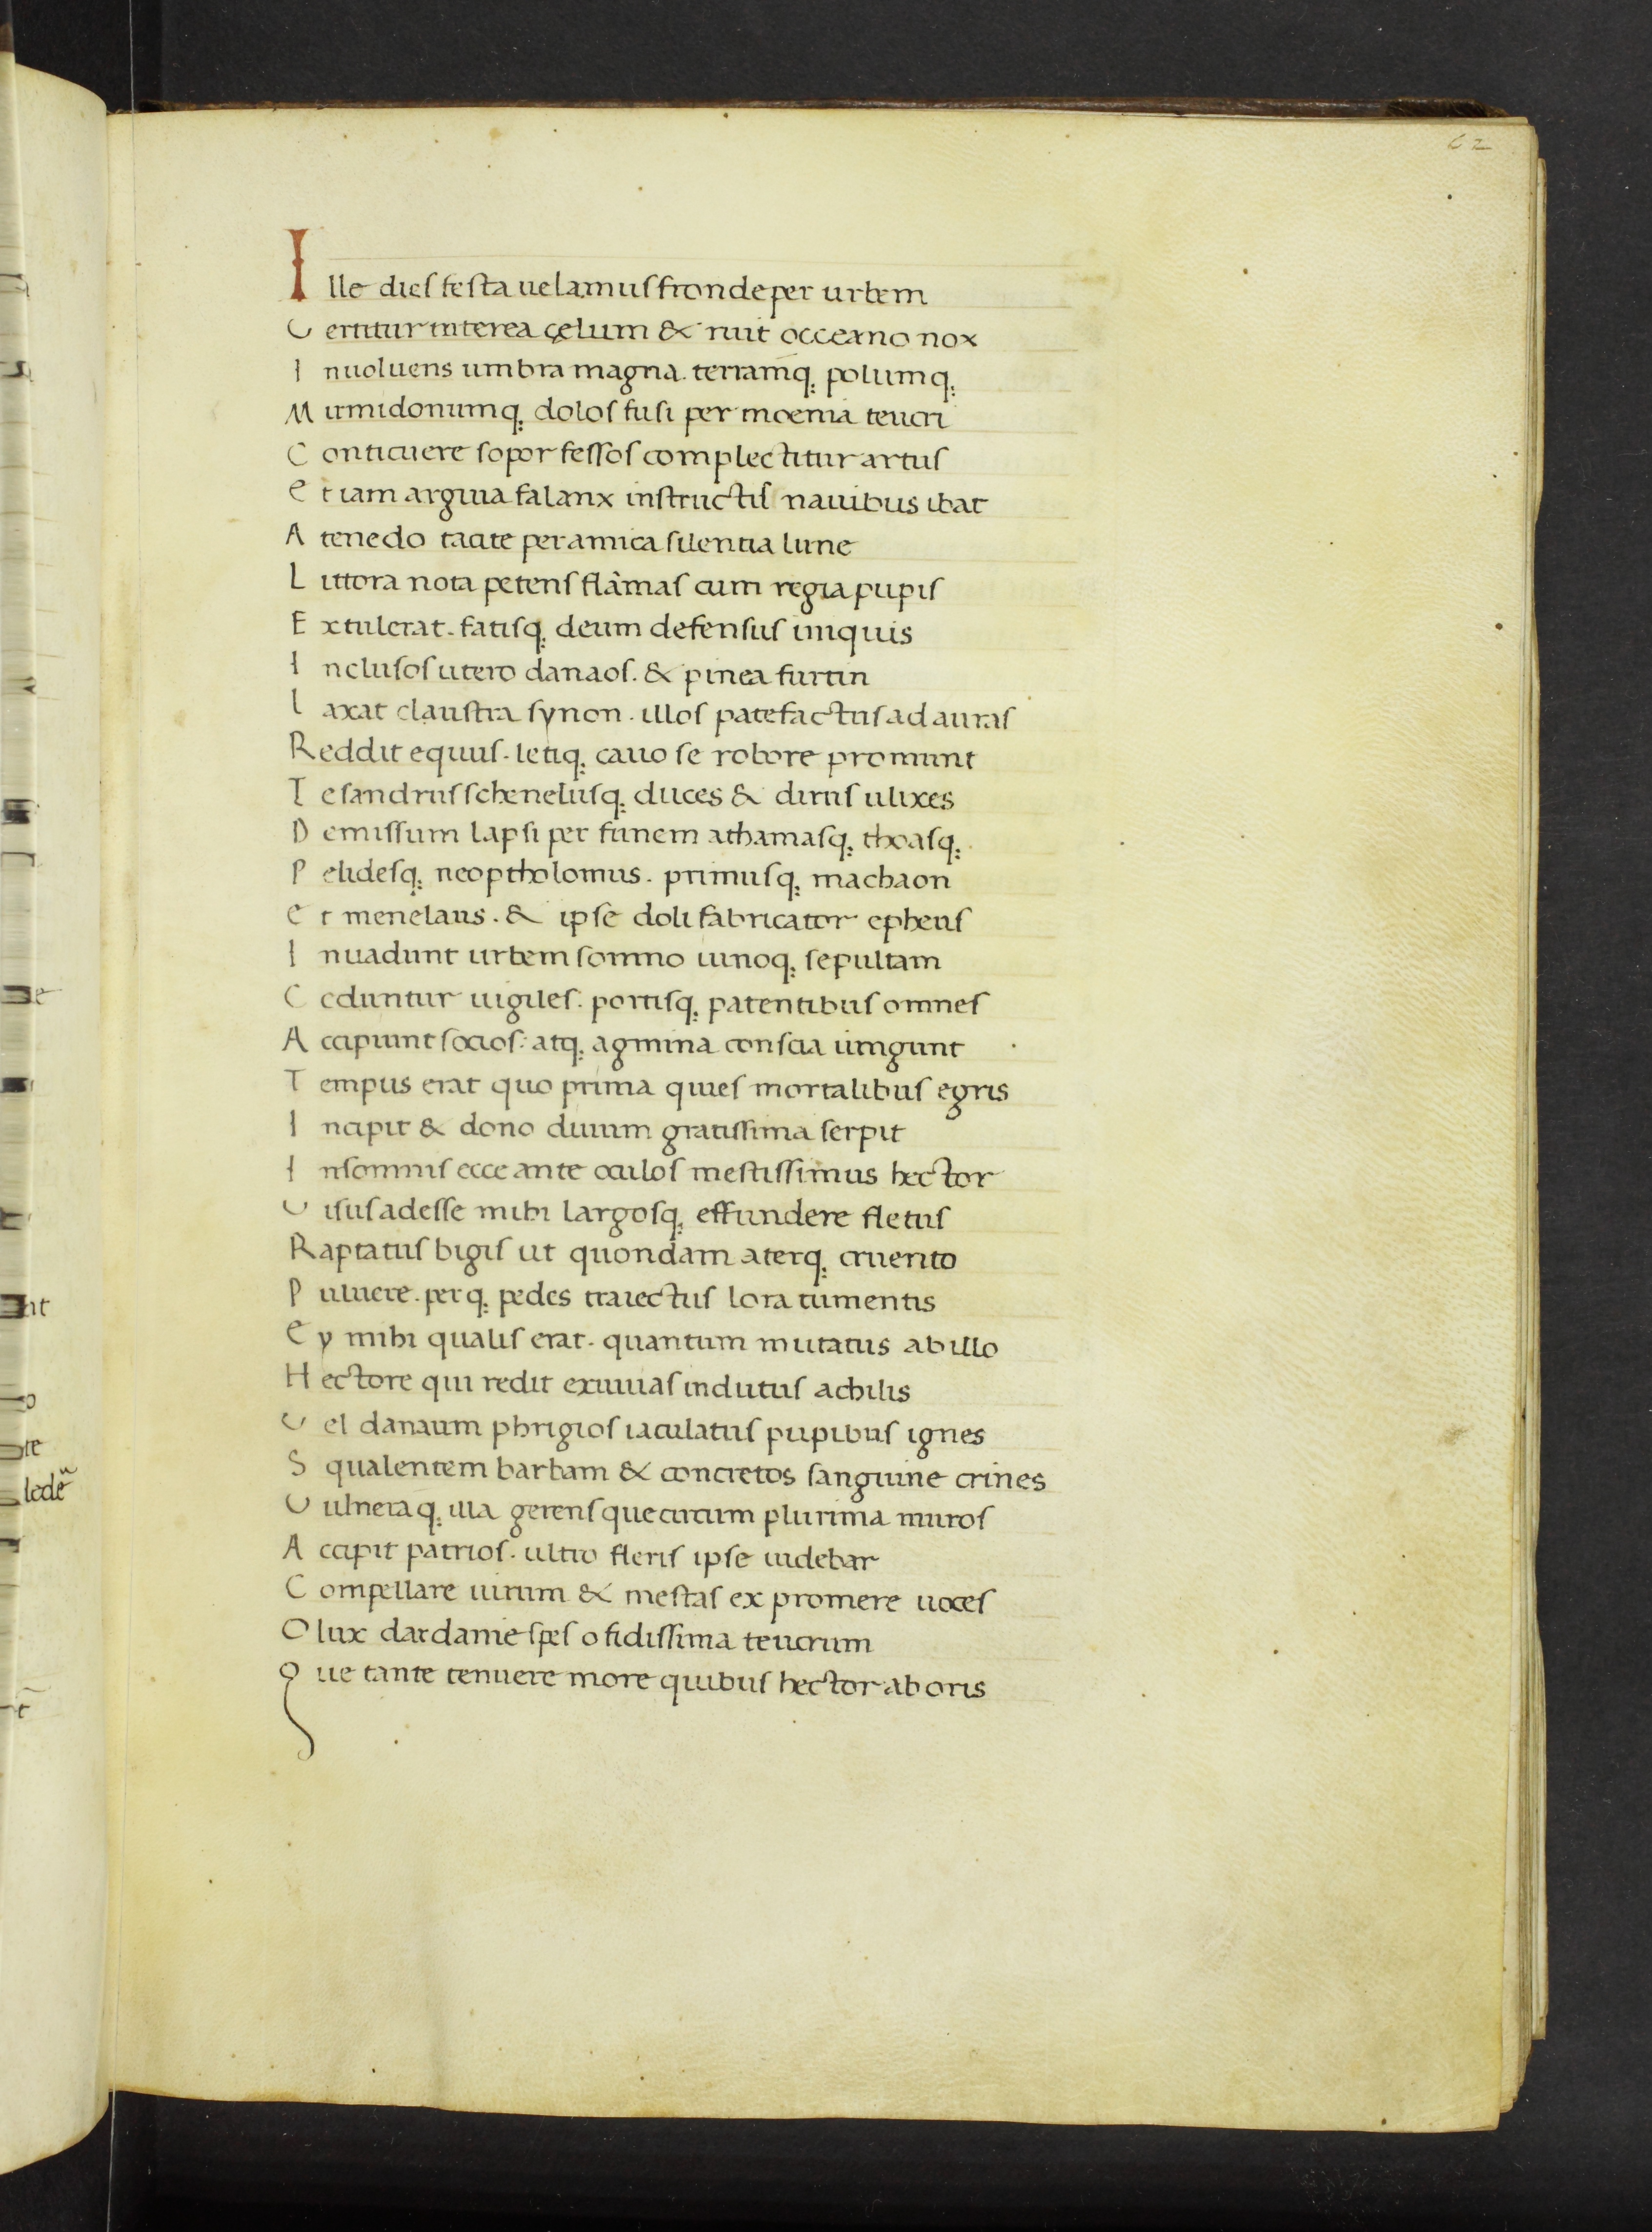 62
Ille dies festa uelamus fronde per urbem
Uertitur interea çelum & ruit occeano nox
Inuoluens umbra magna. terramq; polumq;
Mirmidonumq; dolos fusi per moenia teucri
Conticuere sopor fessos complectitur artus
Et iam argiua falanx instructis nauibus ibat
A tenedo tacite per amica silentia lune
Littora nota petens flāmas cum regia pupis
Extulerat. fatisq; deum defensus iniquis
Inclusos utero danaos. & pinea furtin
laxat claustra synon. illos patefactus ad auras
Reddit equus. letiq; cauo se robore promunt
Tesandrus schenelusq; duces & dirus ulixes
Demissum lapsi per funem athamasq; thoasq;
Pelidesq; neoptholomus. primusq; machaon
Et menelaus. & ipse doli fabricator epheus
Inuadunt urbem somno uinoq; sepultam
Ceduntur uigiles. portisq; patentibus omnes
Accipiunt socios. atq; agmina conscia iungunt
Tempus erat quo prima quies mortalibus egris
Incipit & dono diuum gratissima serpit
Insomnis ecce ante oculos mestissimus hector
Uisus adesse mihi largosq; effundere fletus
Raptatus bigis ut quondam aterq; cruento
Puluere. perq; pedes traiectus lora tumentis
Ey mihi qualis erat. quantum mutatus ab illo
Hectore qui redit exuuias indutus achilis
Uel danaum phrigios iaculatus pupibus ignes
Squalentem barbam & concretos sanguine crines
Uulneraq; illa gerens que circum plurima muros
Accipit patrios. ultro flens ipse uidebar
Compellare uirum & mestas expromere uoces
O lux dardanie spes o fidissima teucrum
Que tante tenuere more quibus hector ab oris